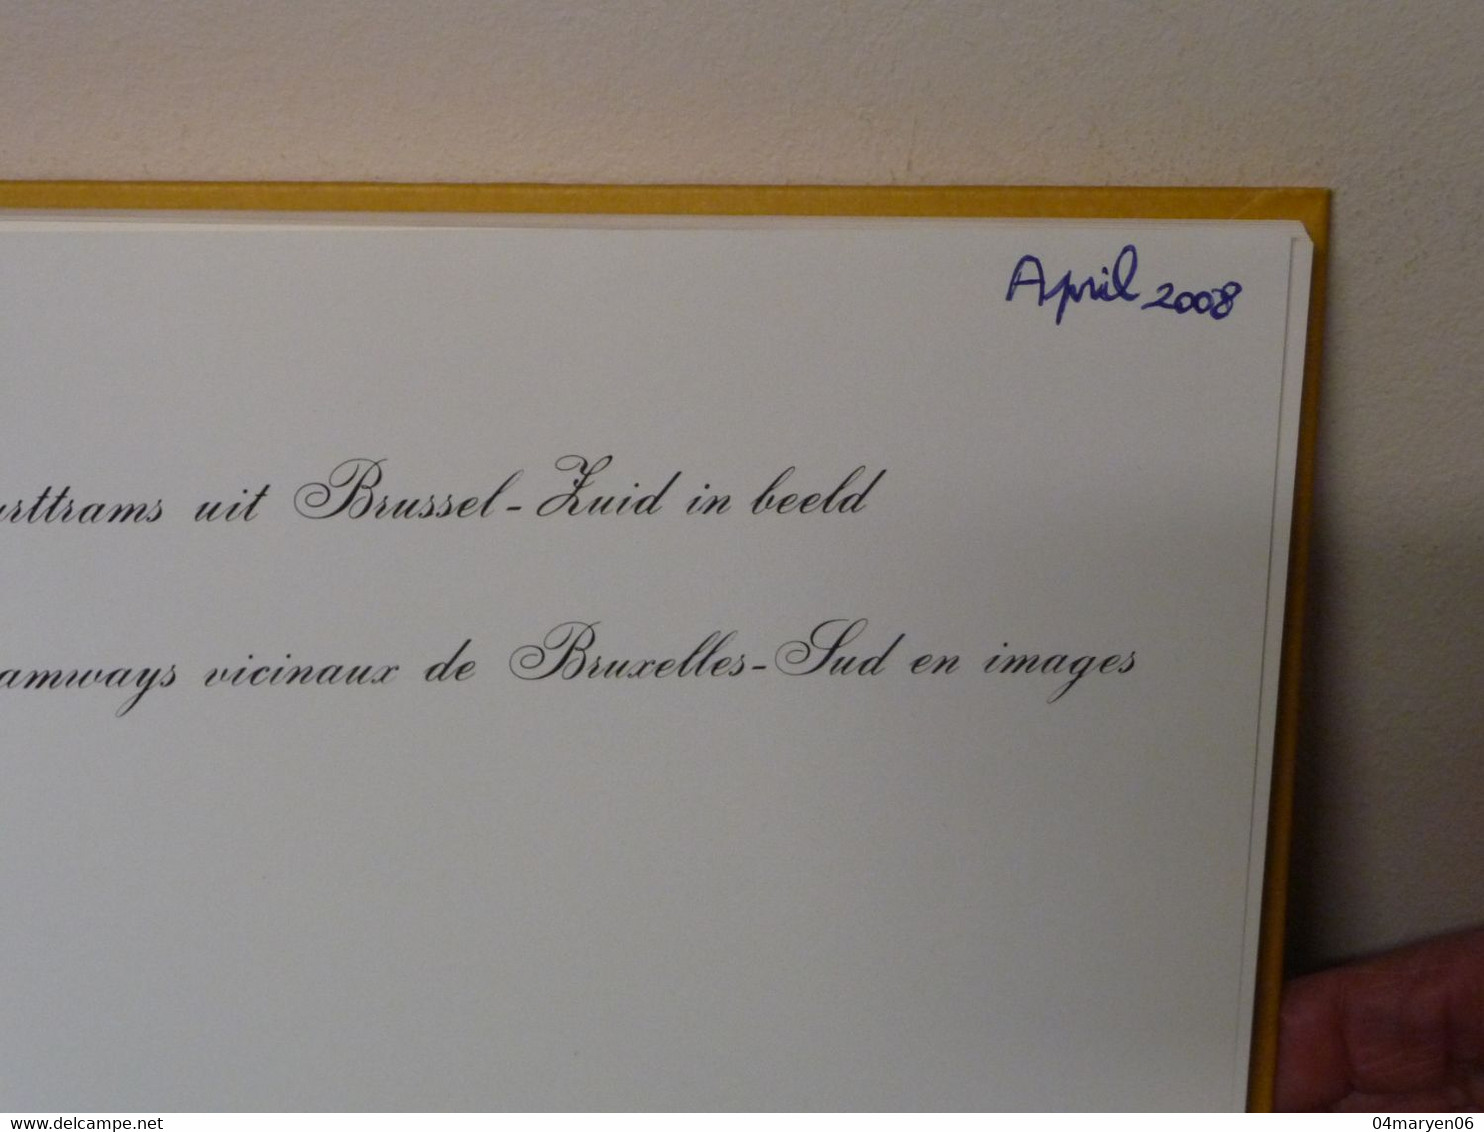 April 2008
urttrams uit Brussel-Zuid in beeld
amways vicinaux de Bruxelles-Sud en images
delcampe.net
04maryen06